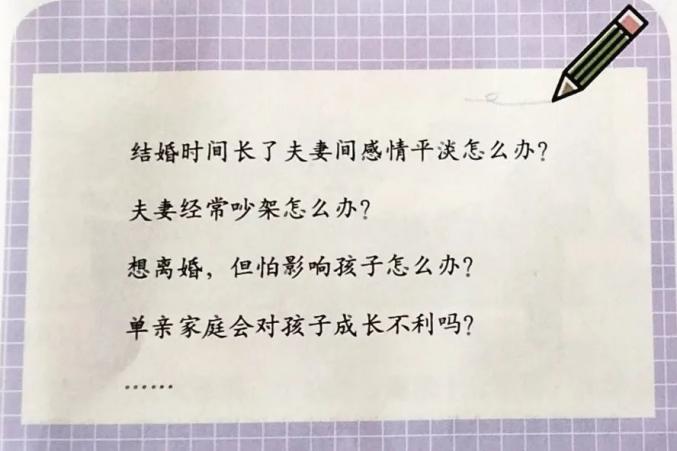 结婚时间长了夫妻间感情平淡怎么办？
夫妻经常吵架怎么办？
想离婚，但怕影响孩子怎么办？
单亲家庭会对孩子成长不利吗？
……